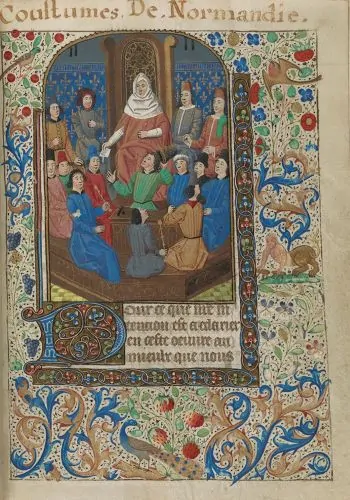 Coustumes De Normandie.
Pour ce que nre in
tencion est declarier
en ceste oeuvre au
mieulx que nous